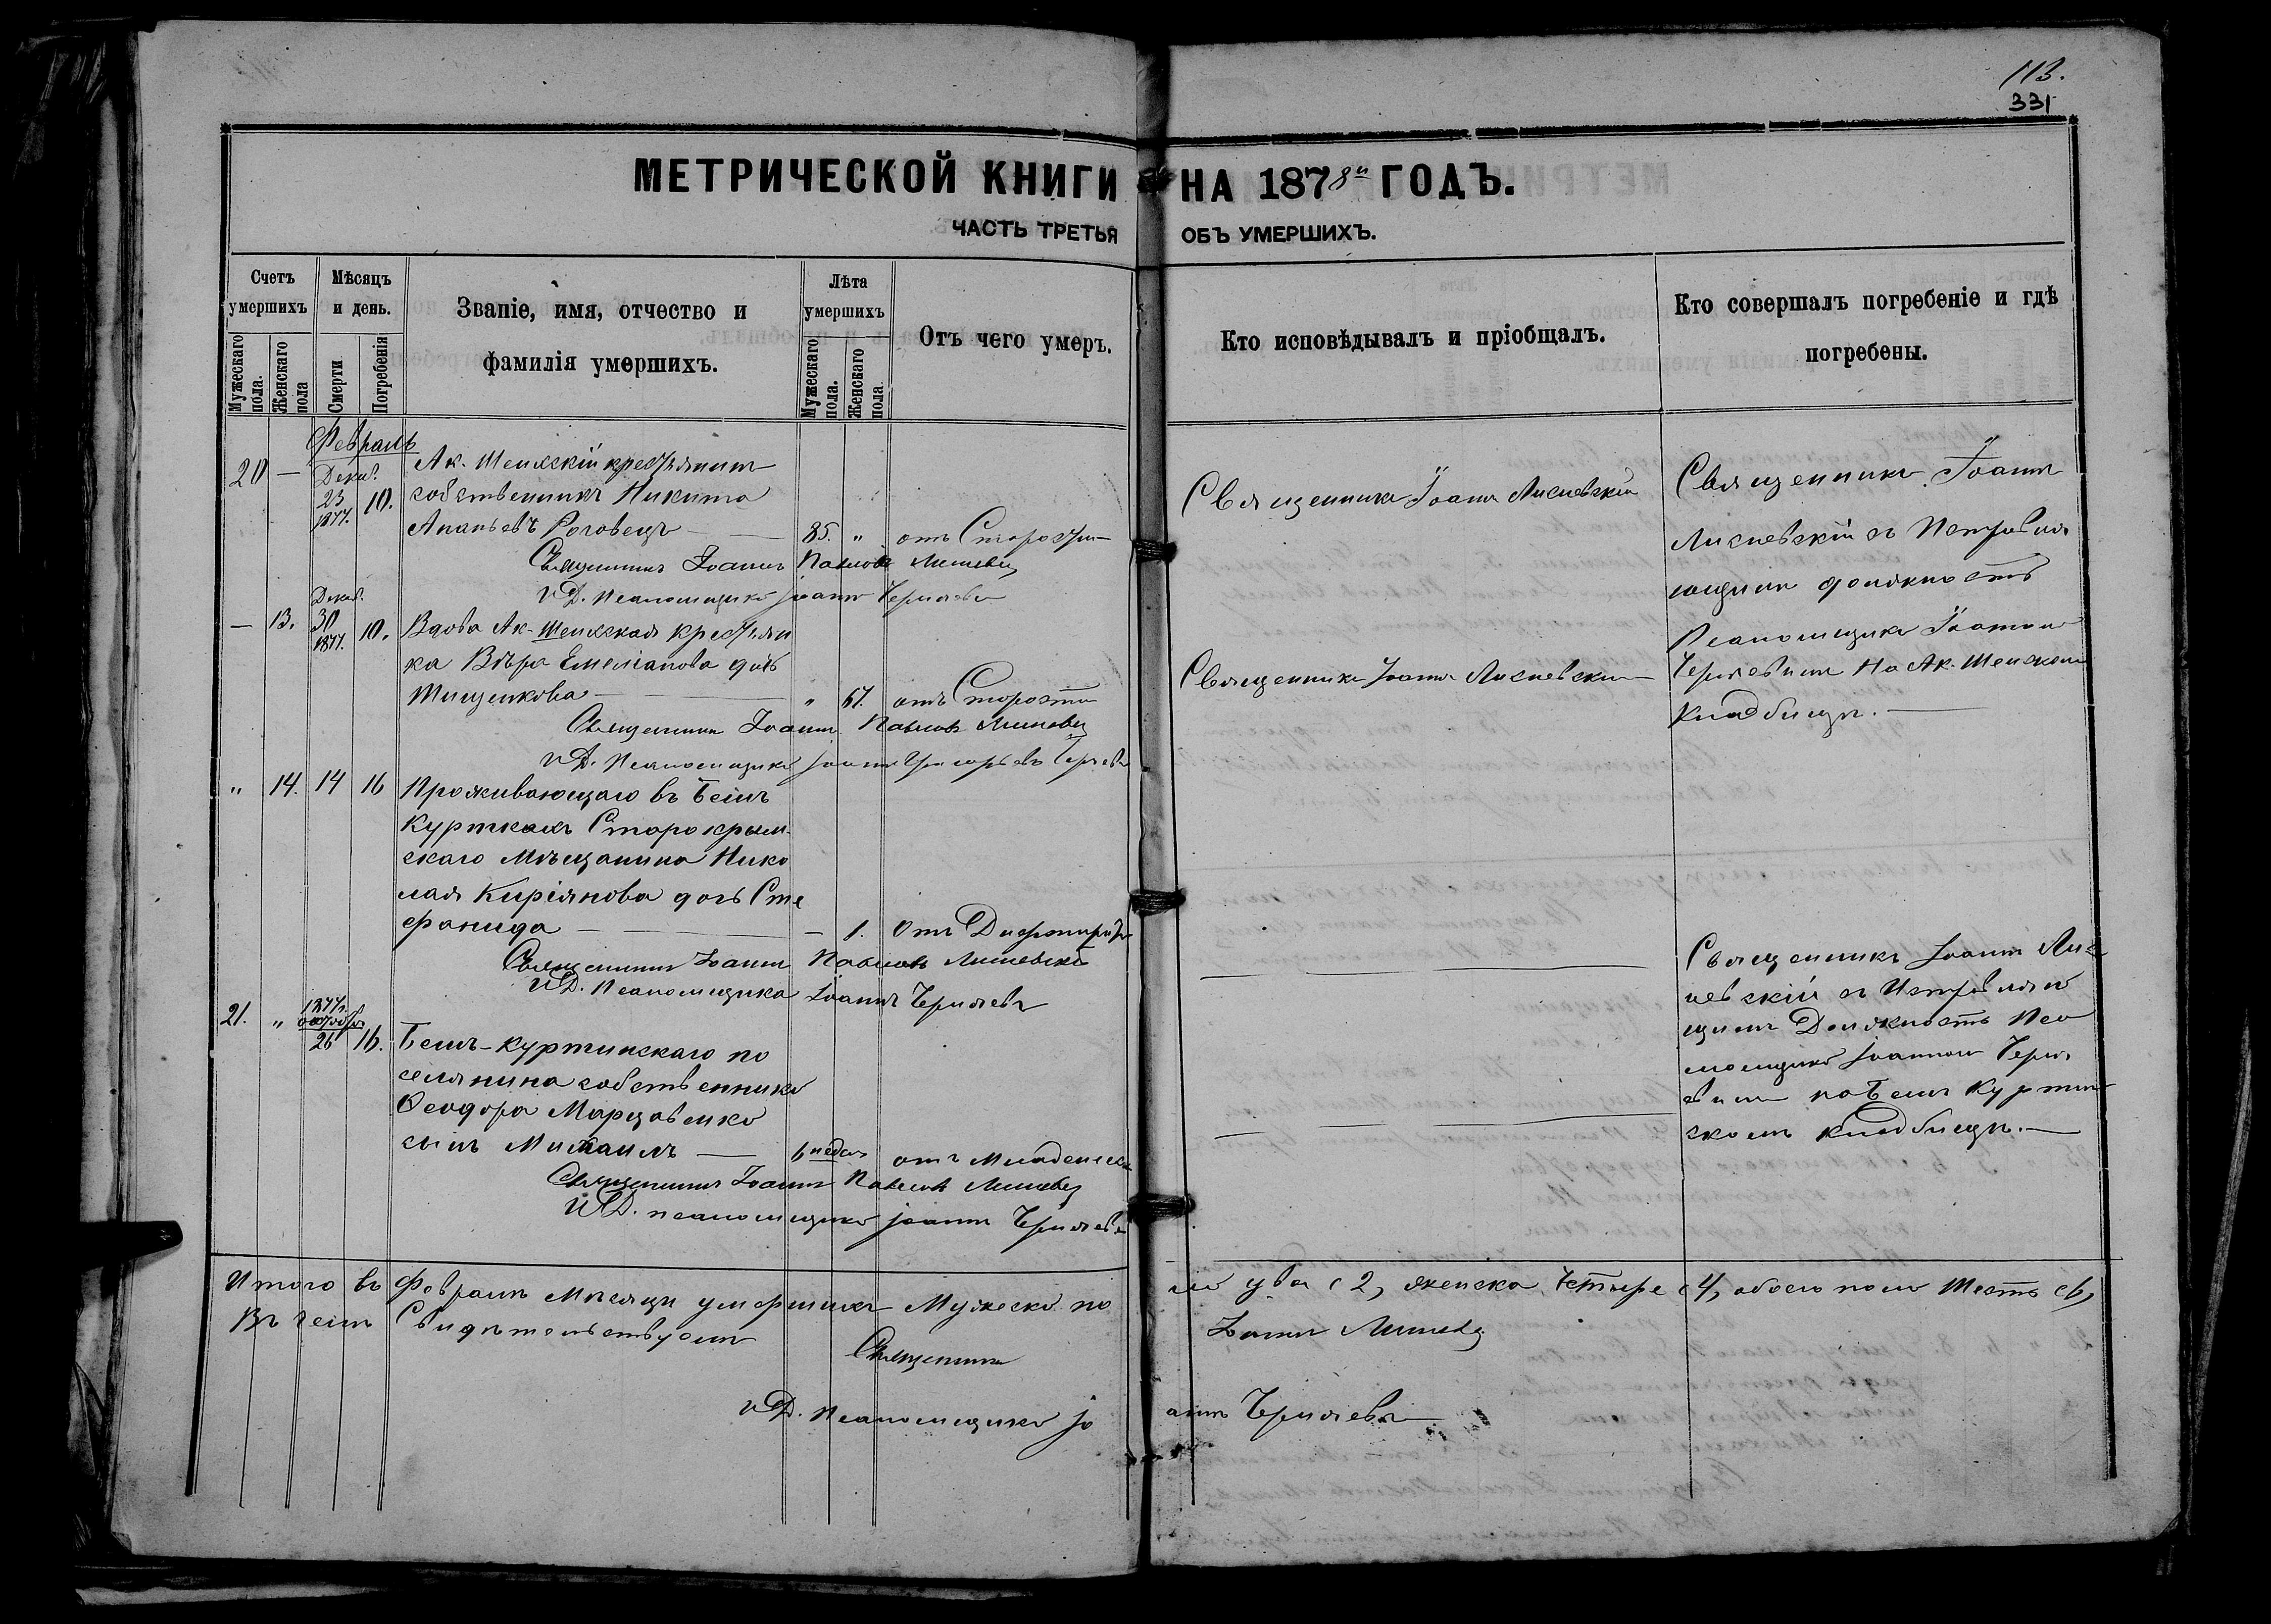 113.
331
МЕТРИЧЕСКОЙ КНИГИ НА 1878й ГОДЪ.
ЧАСТЬ ТРЕТЬЯ ОБЪ УМЕРШИХЪ.
Счетъ умершихъ
Мужескаго пола.
Женскаго пола
Мѣсяцъ и день.
Смерти
Погребенія
Званіе, имя, отчество и фамилія умершихъ.
Лѣта умершихъ
Мужескаго пола.
Женскаго пола
Отъ чего умеръ.
Кто исповѣдывалъ и пріобщалъ.
Кто совершалъ погребеніе и гдѣ погребены.
Февраль
20 — Декаб. 23 1877. 10.
Ак-Шеихскій крестьянинъ
собственникъ Никита
Ананьевъ Роговецъ — 85. " отъ Старости
Священникъ Іоаннъ Павловъ
И.Д. Псаломщика Іоаннъ Черняевъ
Священникъ Іоаннъ
Священникъ Іоаннъ
съ Исправля
ющимъ должность
Псаломщика Іоанномъ
Черняевымъ На Ак-Шеихском
Кладбищѣ. —
— 13. Декаб. 30 1877. 10.
Вдова Ак-Шеихская крестьян
ка Вѣра Емеліанова дочь
Тищенкова — " 67. отъ Старости
Священникъ Іоаннъ Павловъ
И.Д. Псаломщика Іоаннъ Григорьевъ Черняевъ
Священникъ Іоаннъ
" 14. 14 16
Проживающаго въ Бешъ
Курткахъ Старокрым-
скаго Мѣщанина Нико
лая Киріянова дочь Сте
фанида — — 1. Отъ Дифтирита
Священникъ Іоаннъ Павловъ
И.Д. Псаломщика Іоаннъ Черняевъ
Священникъ Іоаннъ
съ Исправляю
щимъ Должность Пса
ломщика Іоанномъ Черня
евымъ на Бешъ Куртин
скомъ Кладбищѣ. —
21. " 1877 26 16.
Бешъ-Куртинскаго по
селянина собственника
Ѳеодора
сынъ Михаилъ — 6 недѣль отъ младенческ
Священникъ Іоаннъ Павловъ
И.Д. псаломщика Іоаннъ Черняевъ
Итого въ Февралѣ Мѣсяцѣ умершихъ Мужеска по ла два (2, женска Четыре (4, обоего пола Шесть (6,
Въ чемъ Свидѣтельствуемъ
Священникъ Іоаннъ
И.Д. Псаломщика Іо аннъ Черняевъ